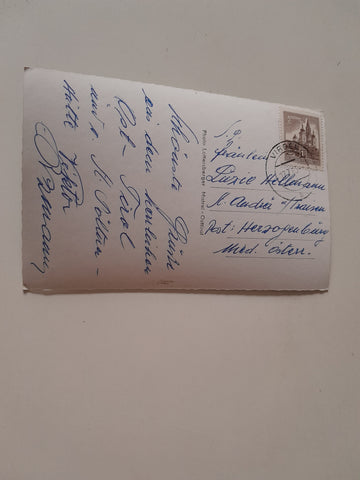 Schönste Grüße
aus dem herrlichen
Ost-Tirol
und v. St. Pölten-
Hütte
Photo Lottersberger Matrei-Osttirol
S. g.
Fräulein
Luzie Hellmann
St. Andrä a/Traisen
Post: Herzogenburg
Nied. Österr.